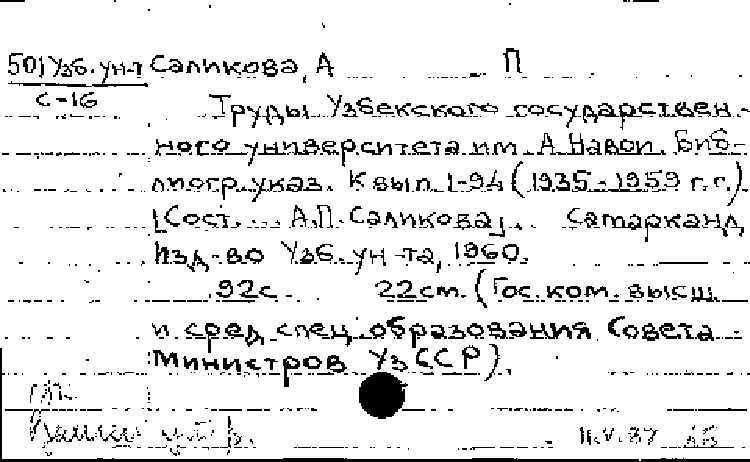 50) Узб. ун-т Саликова, А П
С-16
Труды Узбекского государствен-
ного университета им. А. Навои. Биб-
лиогр. указ. К вып. 1-94 (1935-1959 г.г.)
[Сост. ... А.П. Саликова]. Самарканд
Изд-во Узб. ун-та, 1960.
92с. 22см. (Гос. ком. высш.
и сред. спец. образования Совета
Министров УзССР).
11.V.87